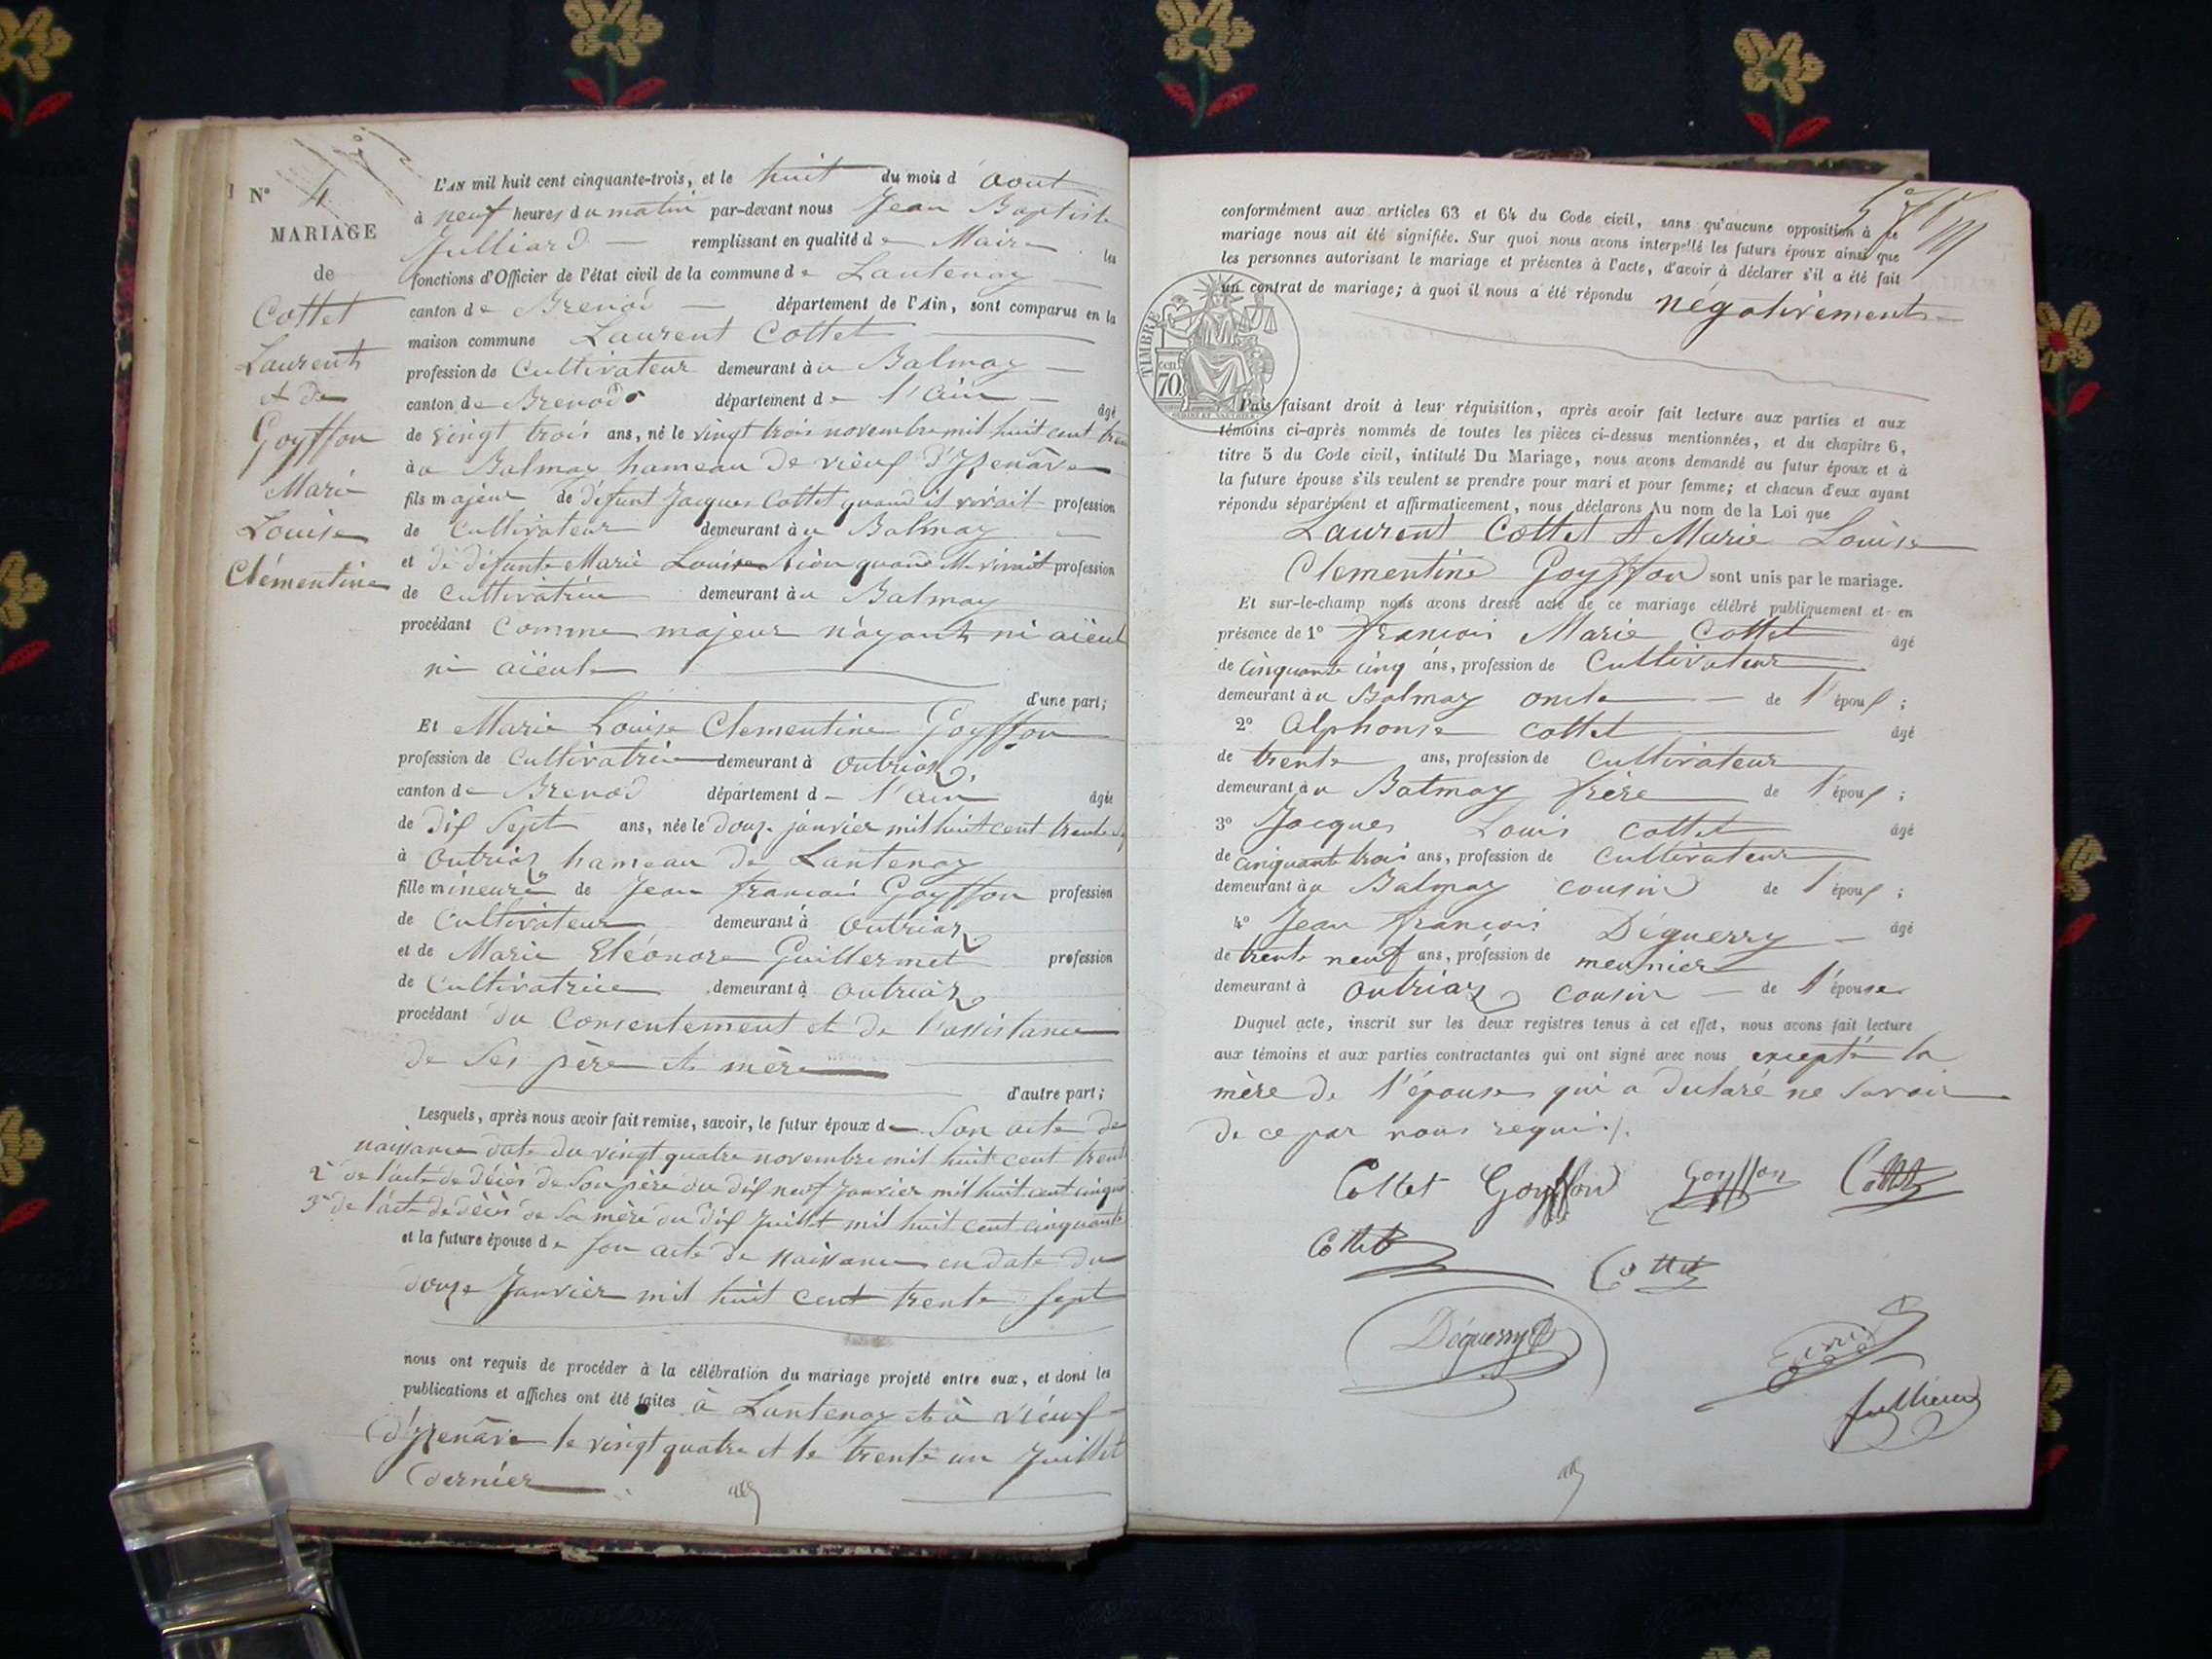 N° 4
MARIAGE
de
Cottet
Laurent
et de
Goyffon
Marie
Louise
Clémentine
L'AN mil huit cent cinquante-trois, et le huit du mois d'aout
à neuf heures du matin par-devant nous Jean Baptiste
Julliard remplissant en qualité de Maire les
fonctions d'Officier de l'état civil de la commune de Lantenay
canton de Brenod département de l'Ain, sont comparus en la
maison commune Laurent Cottet
profession de Cultivateur demeurant àu Balmay
canton de Brenod département de l'Ain âgé
de vingt trois ans, né le vingt trois novembre mil huit cent
àu Balmay hameau de vieux d'Izenâve
fils majeur de défunt Jacques Cottet quand il vivait profession
de Cultivateur demeurant àu Balmay
et de défunte Marie Louise quand elle vivait profession
de Cultivatrice demeurant àu Balmay
procédant Comme majeur n'ayant ni aïeul
ni aïeule
d'une part;
Et Marie Louise Clementine Goyffon
profession de Cultivatrice demeurant à Outriaz,
canton de Brenod département de l'ain âgée
de dix sept ans, née le douze janvier mil huit cent trente
à Outriaz hameau de Lantenay
fille mineure de Jean françois Goyffon profession
de Cultivateur demeurant à Outriaz
et de Marie Eléonore Guillermet profession
de Cultivatrice demeurant à Outriaz
procédant du Consentement et de l'assistance
de Ses père et mère
d'autre part;
Lesquels, après nous avoir fait remise, savoir, le futur époux de Son acte de
naissance date du vingt quatre novembre mil huit cent
2° de l'acte de décès de Son père du dix neuf Janvier mil huit cent
3° de l'acte de décès de Sa mère du dix Juillet mil huit cent cinquante
et la future épouse de son acte de naissance en date du
douze Janvier mil huit cent trente sept
nous ont requis de procéder à la célébration du mariage projeté entre eux, et dont les
publications et affiches ont été faites à Lantenay et à vieux
d'Izenâve le vingt quatre et le trente un Juillet
dernier
conformément aux articles 63 et 64 du Code civil, sans qu'aucune opposition à ce
mariage nous ait été signifiée. Sur quoi nous avons interpellé les futurs époux ainsi que
les personnes autorisant le mariage et présentes à l'acte, d'avoir à déclarer s'il a été fait
un contrat de mariage; à quoi il nous a été répondu négativement
TIMBRE
70
Puis faisant droit à leur réquisition, après avoir fait lecture aux parties et aux
témoins ci-après nommés de toutes les pièces ci-dessus mentionnées, et du chapitre 6,
titre 5 du Code civil, intitulé Du Mariage, nous avons demandé au futur époux et à
la future épouse s'ils veulent se prendre pour mari et pour femme; et chacun d'eux ayant
répondu séparément et affirmativement, nous déclarons Au nom de la Loi que
Laurent Cottet et Marie Louise
Clementine Goyffon sont unis par le mariage.
Et sur-le-champ nous avons dressé acte de ce mariage célébré publiquement et en
présence de 1° françois Marie Cottet âgé
de Cinquante cinq ans, profession de Cultivateur
demeurant àu Balmay oncle de l'époux ;
2° Alphonse Cottet âgé
de trente ans, profession de Cultivateur
demeurant àu Balmay frère de l'époux ;
3° Jacques Louis Cottet âgé
de Cinquante trois ans, profession de Cultivateur
demeurant àu Balmay cousin de l'époux ;
4° Jean françois Déguerry âgé
de trente neuf ans, profession de meunier
demeurant à Outriaz cousin de l'épouse
Duquel acte, inscrit sur les deux registres tenus à cet effet, nous avons fait lecture
aux témoins et aux parties contractantes qui ont signé avec nous excepté la
mère de l'épouse qui a declaré ne Savoir
de ce par nous requis.
Cottet Goyffon Goyffon Cottet
Cottet Cottet
Déguerry
Julliard